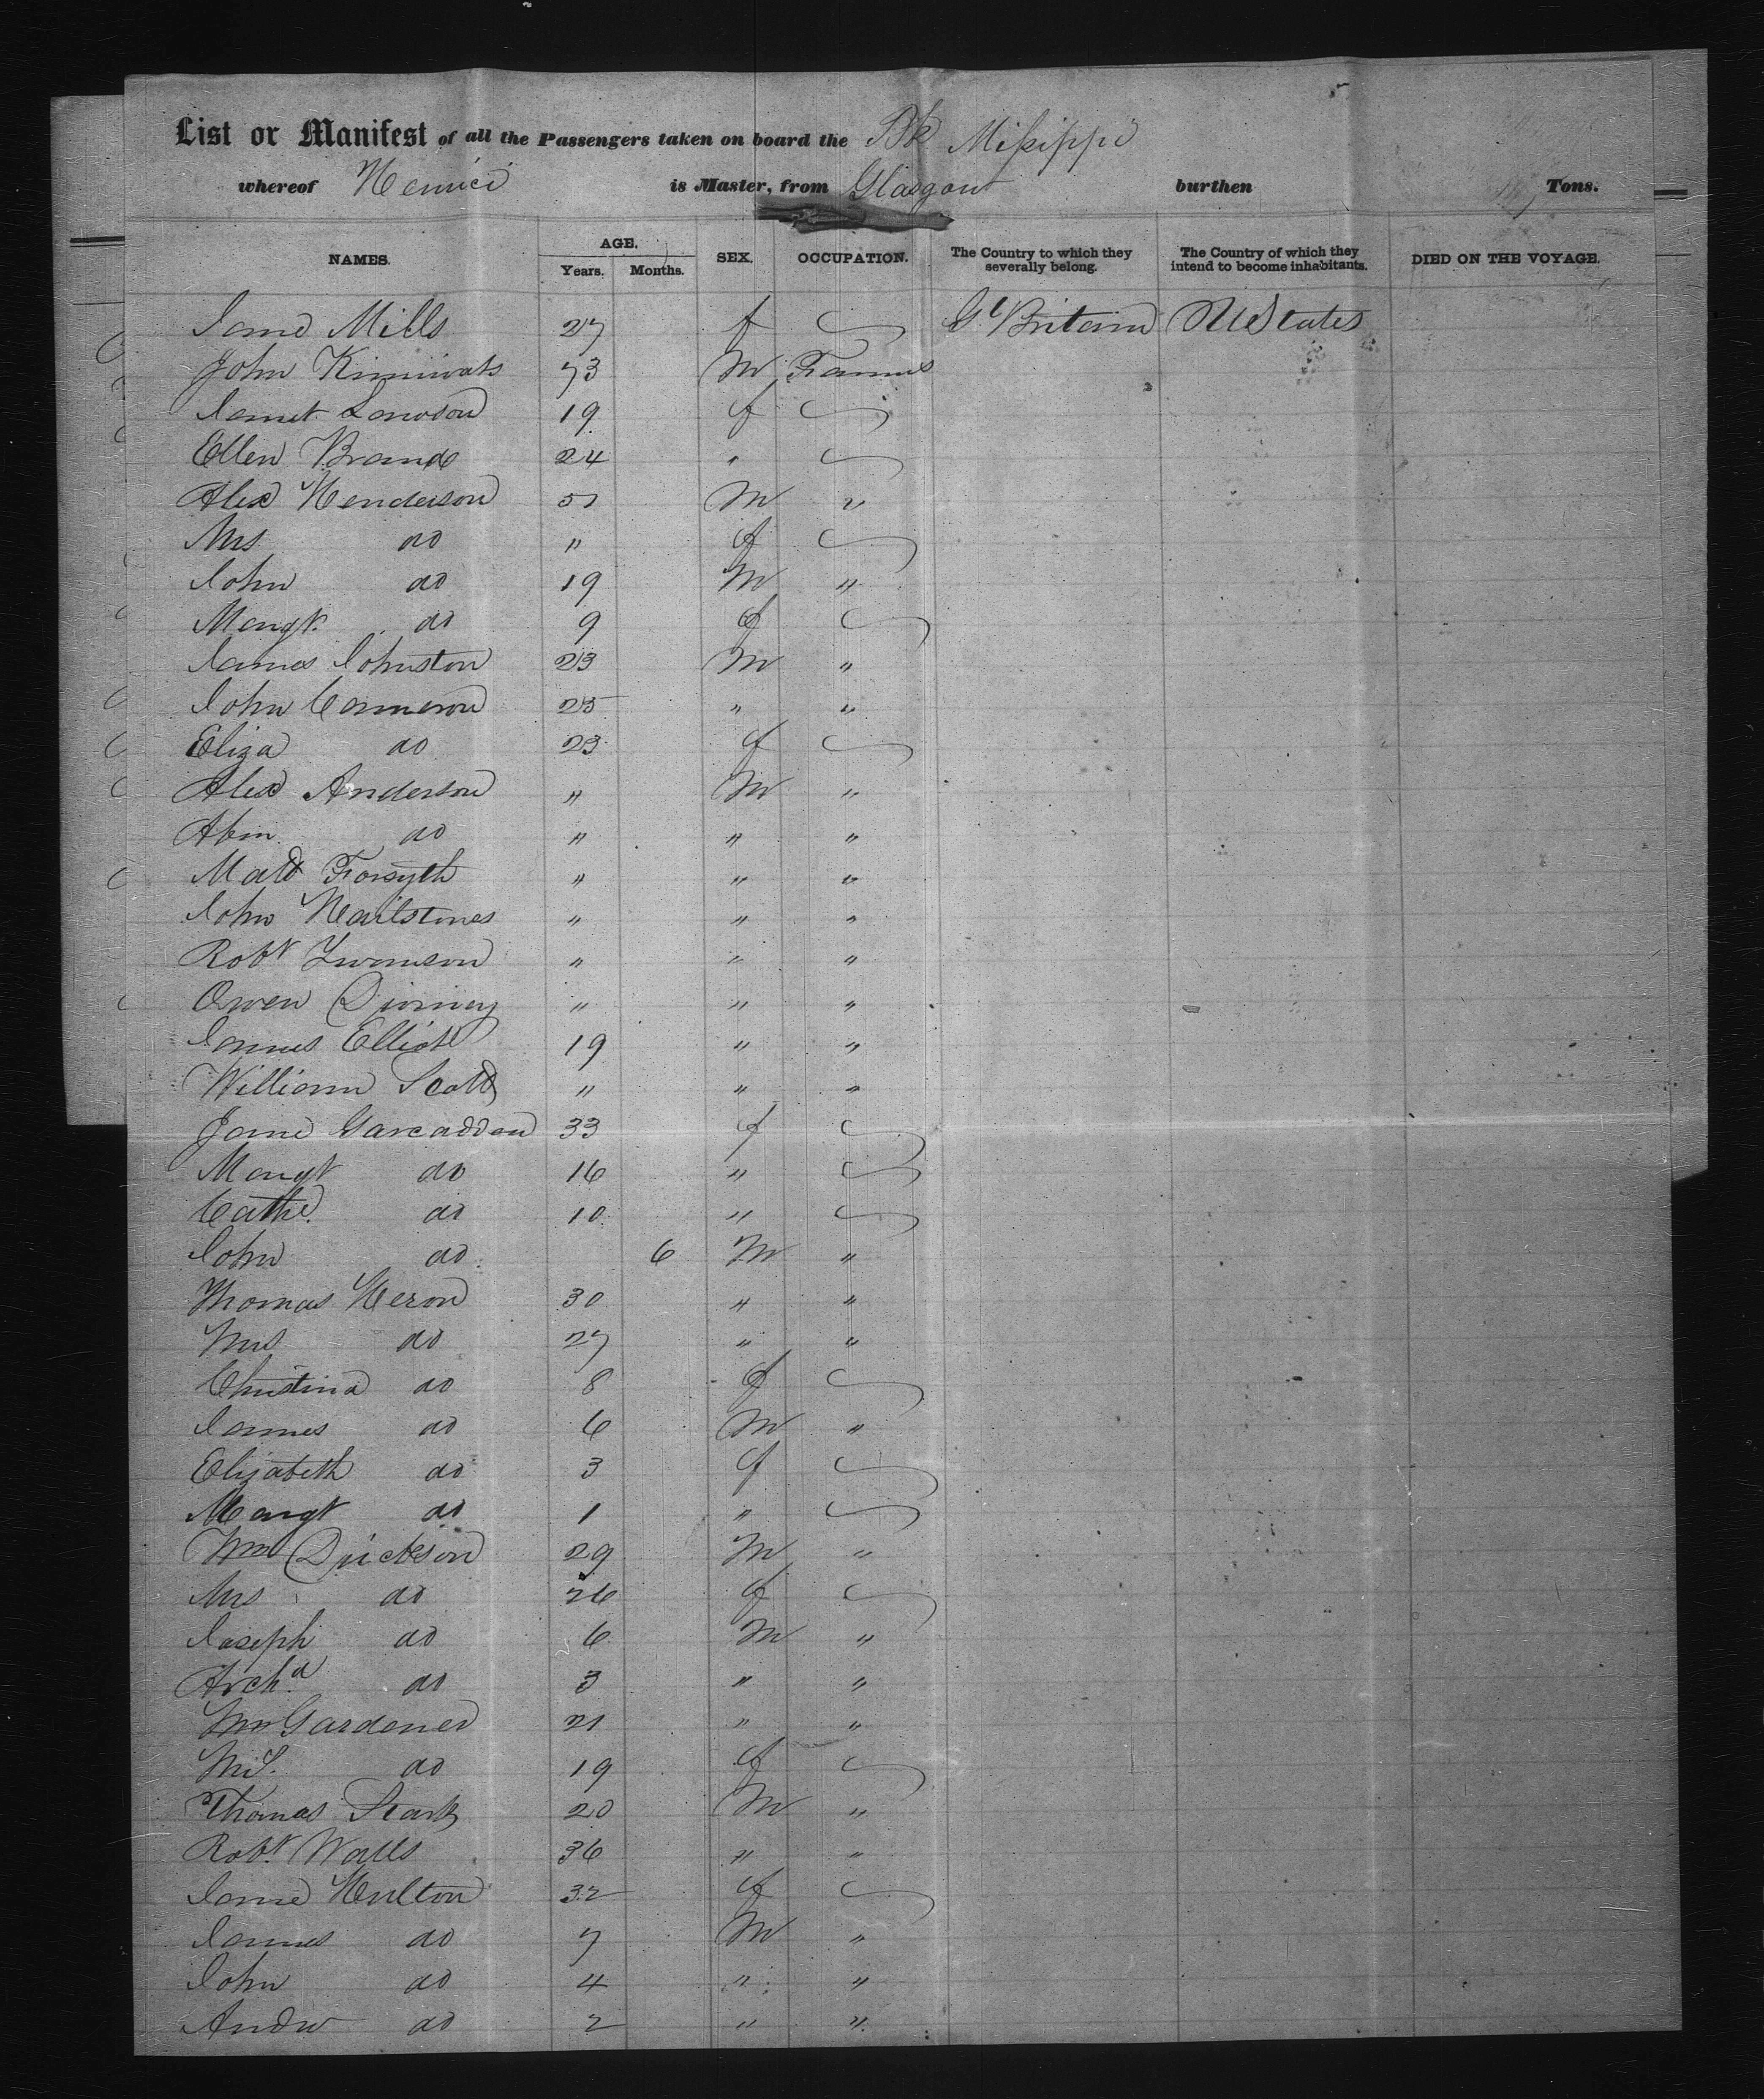 List or Manifest of all the Passengers taken on board the Bk Missippi
whereof is Master, from Glasgow burthen Tons.
NAMES. AGE. Years. Months. SEX. OCCUPATION. The Country to which they severally belong. The Country of which they intend to become inhabitants. DIED ON THE VOYAGE.
Jane Mills 27 f Gt Britain U States
John 73 M Farmer
Janet Lawson 19 f
Ellen Brand 24 "
Alex Henderson 51 M "
Mrs do " f
John do 19 M "
Margt. do 9 f
James Johnston 23 M "
John Cameron 25 " "
Eliza do 23 f
Alex Anderson " M "
do " " "
Matt Forsyth " " "
John Hailstones " " "
Robt " " "
Owen " " "
James Elliott 19 " "
William Scott " " "
Jane Garcadden 33 f
Margt do 16 "
Cathe. do 10 "
John do 6 M "
Thomas Heron 30 " "
Mrs do 27 " "
Christina do 8 f
James do 6 M "
Elizabeth do 3 f
Margt do 1 "
Wm Dickson 29 M "
Mrs do 26 f
Joseph do 6 M "
Archd do 3 " "
Wm Gardener 21 " "
Mrs. do 19 f
Thomas Stark 20 M "
Robt. Watts 36 " "
Jane Hulton 32 f
James do 7 M "
John do 4 " "
Andw do 2 " "